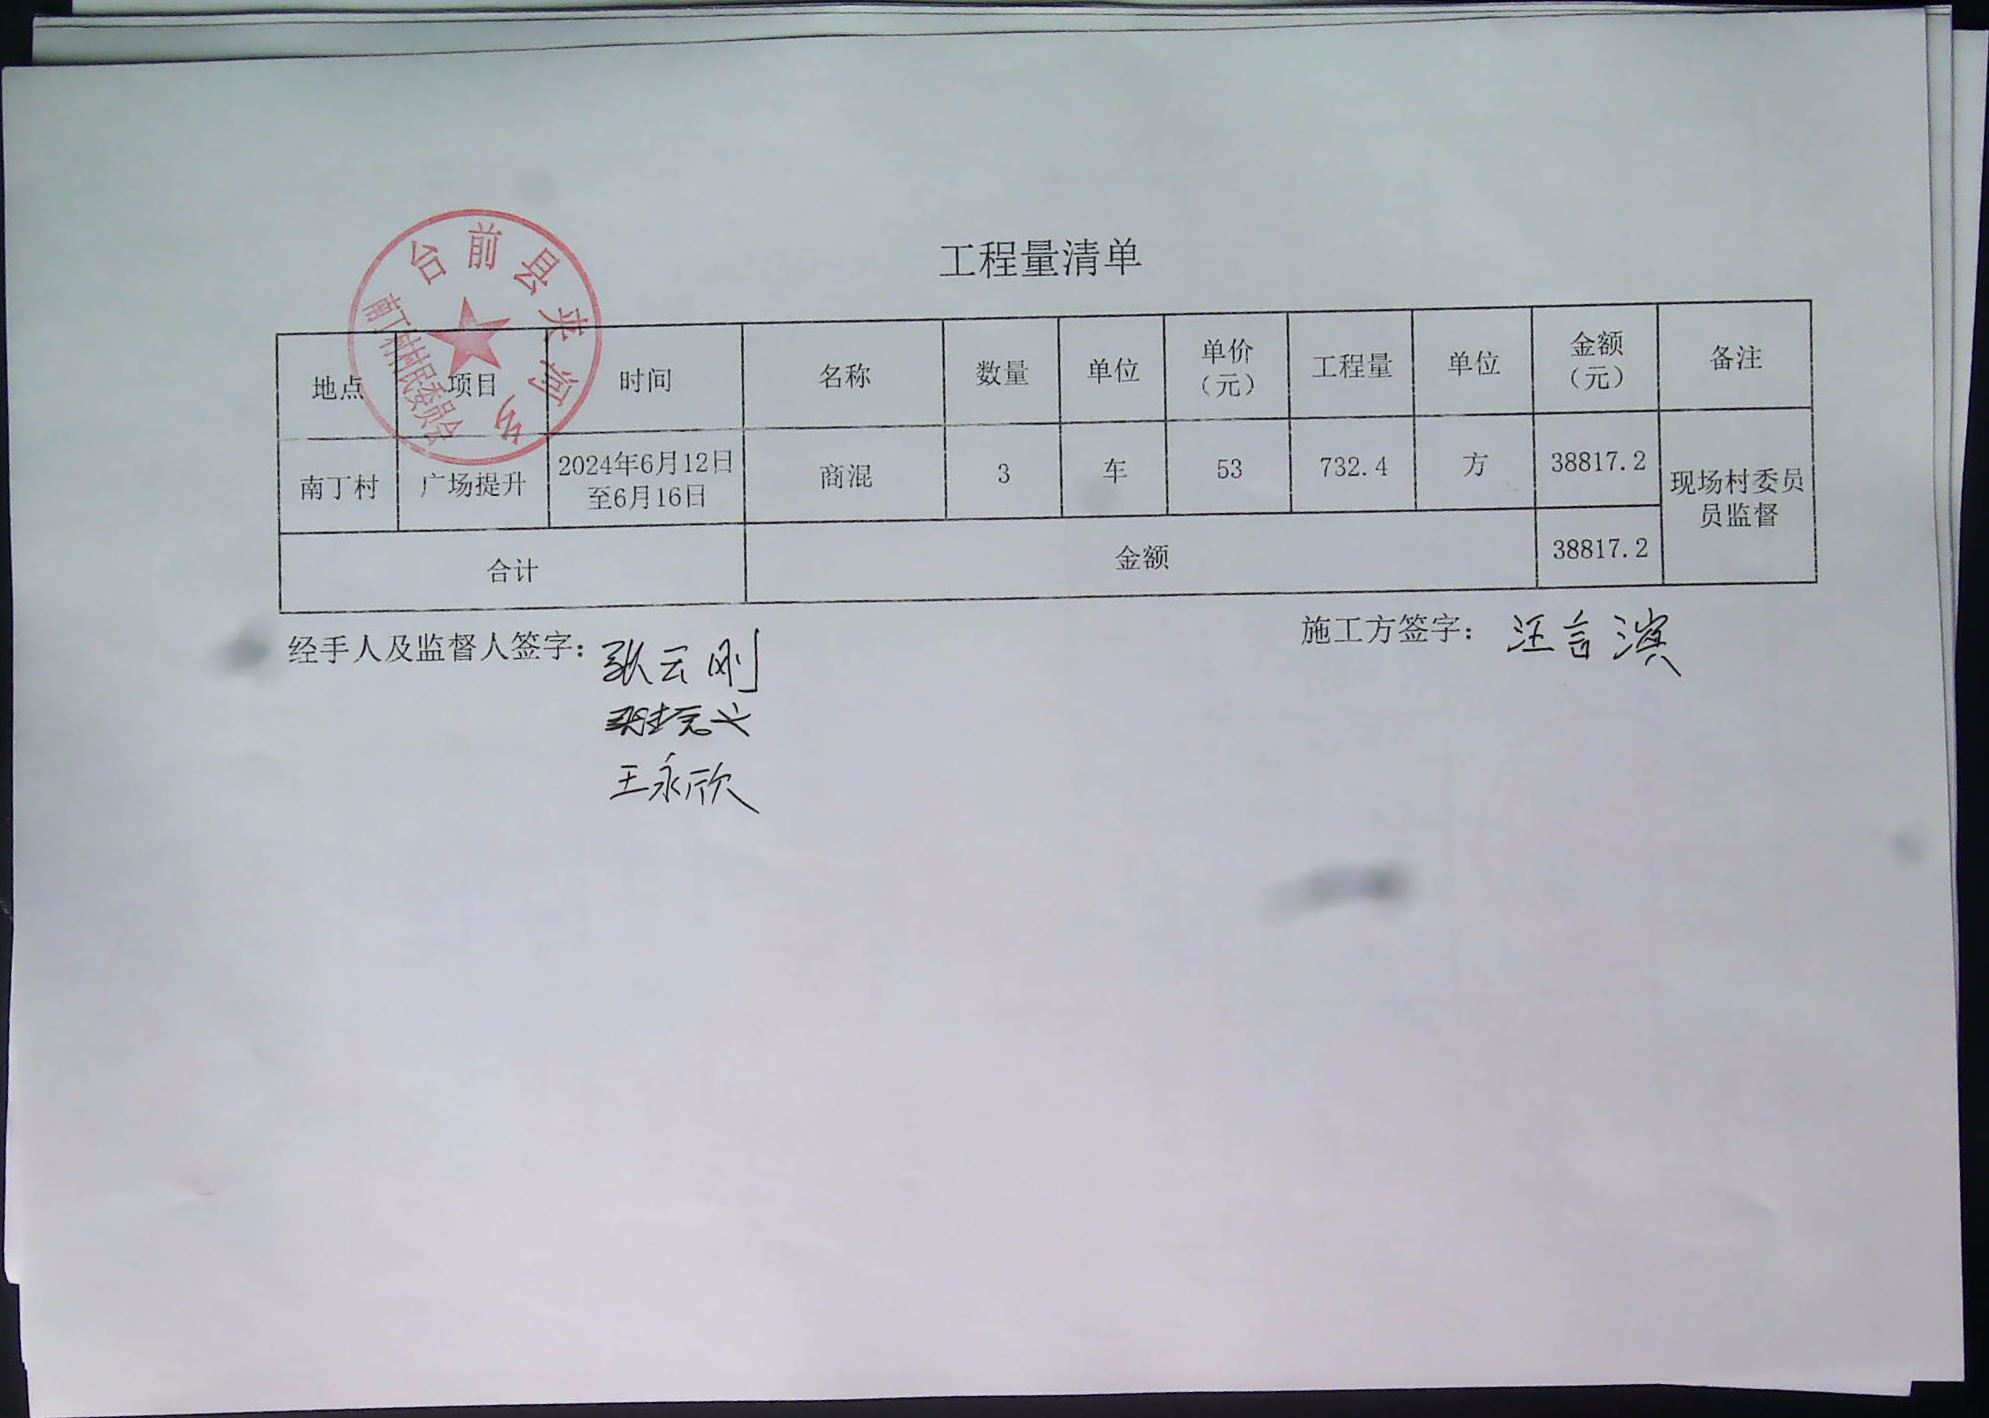 工程量清单
台前县夹河乡
南丁村村民委员会
地点 项目 时间 名称 数量 单位 单价（元） 工程量 单位 金额（元） 备注
南丁村 广场提升 2024年6月12日至6月16日 商混 3 车 53 732.4 方 38817.2 现场村委员员监督
合计 金额 38817.2
经手人及监督人签字： 云刚
王永欣
施工方签字： 汪言演